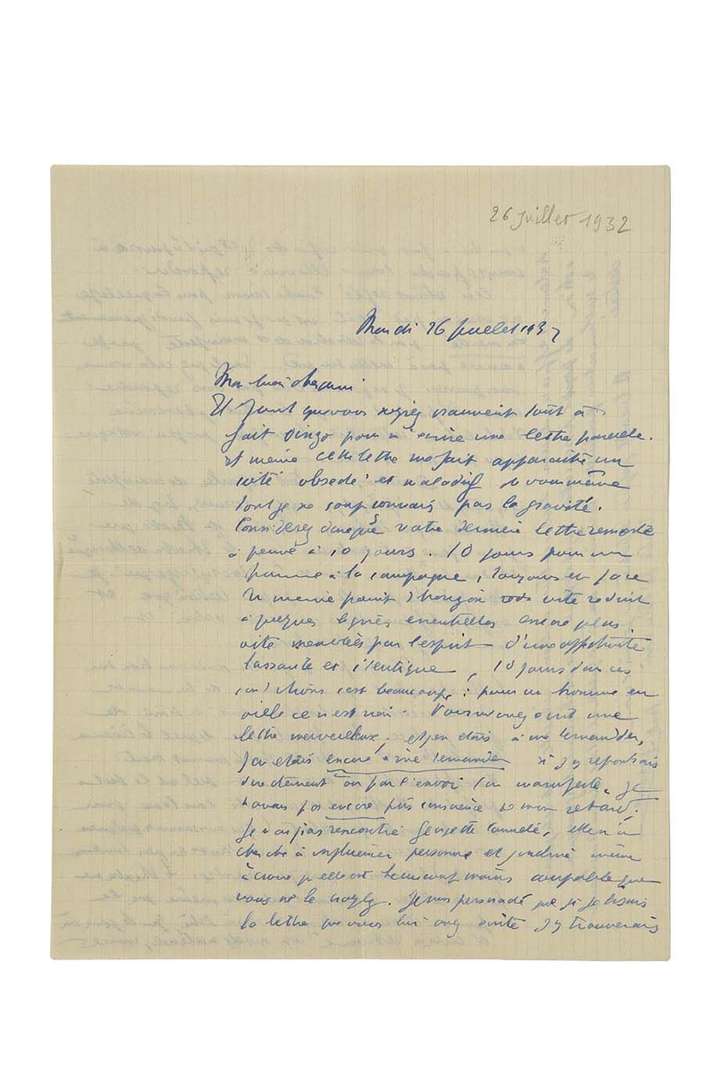 26 juillet 1932
Mardi 26 juillet 1932
Mon bien cher ami
Il faut que vous soyez vraiment tout à
fait dingo pour m'écrire une lettre pareille.
Et même cette lettre me fait apparaître un
côté obsédé et maladif de vous-même
dont je ne soupçonnais pas la gravité.
Considérez donc que votre dernière lettre remonte
à peine à 10 jours. 10 jours pour un
homme à la campagne, toujours en face
du même point d'horizon vite réduit
à quelques lignes essentielles encore plus
vite meublées par l'esprit d'une
lassante et identique, 10 jours dans ces
conditions c'est beaucoup ; pour un homme en
ville ce n'est rien. Vous m'avez écrit une
lettre merveilleuse, et j'en étais à me demander,
j'en étais encore à me demander si j'y répondrais
directement ou par l'envoi d'un manifeste, je
n'avais pas encore pris conscience de mon retard.
Je n'ai pas rencontré elle n'a
cherché à influencer personne et j'incline même
à croire qu'elle est beaucoup moins coupable que
vous ne le croyez. Je suis persuadé que si je lisais
la lettre que vous lui avez écrite j'y trouverais